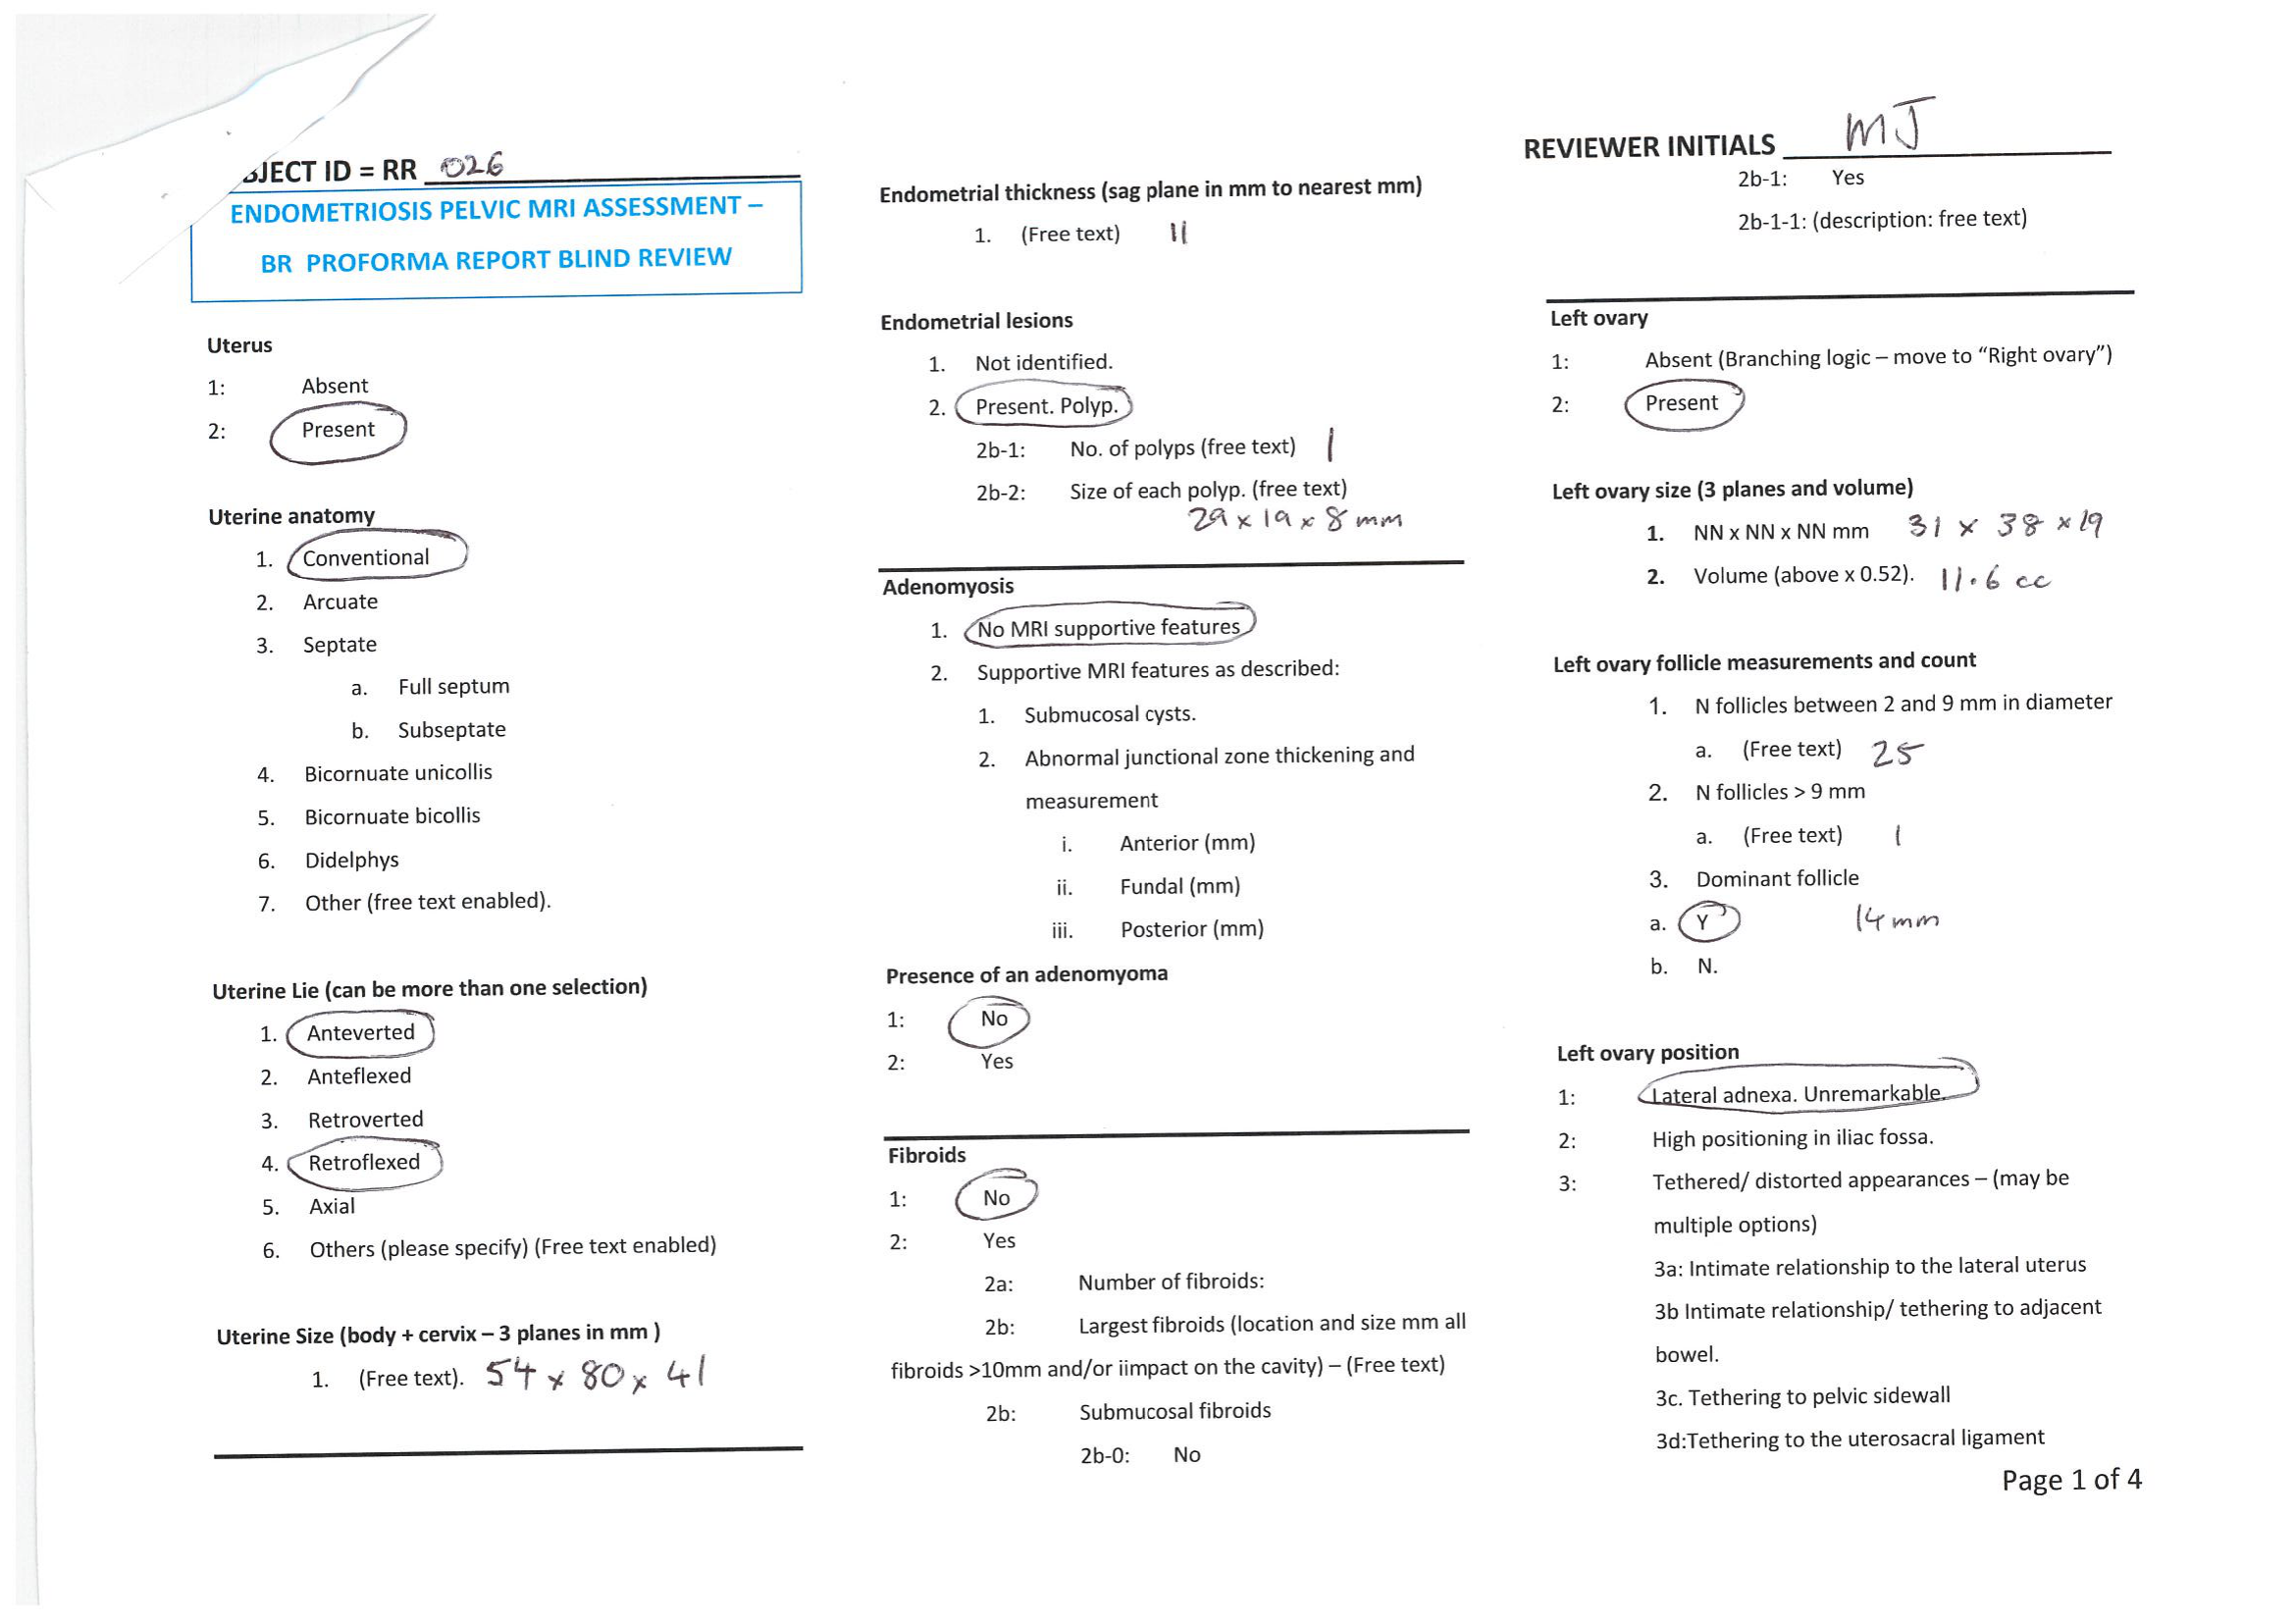 BJECT ID = RR 026
ENDOMETRIOSIS PELVIC MRI ASSESSMENT –
BR PROFORMA REPORT BLIND REVIEW
Uterus
1: Absent
2: Present
Uterine anatomy
1. Conventional
2. Arcuate
3. Septate
a. Full septum
b. Subseptate
4. Bicornuate unicollis
5. Bicornuate bicollis
6. Didelphys
7. Other (free text enabled).
Uterine Lie (can be more than one selection)
1. Anteverted
2. Anteflexed
3. Retroverted
4. Retroflexed
5. Axial
6. Others (please specify) (Free text enabled)
Uterine Size (body + cervix – 3 planes in mm )
1. (Free text). 54 x 80 x 41
Endometrial thickness (sag plane in mm to nearest mm)
1. (Free text) 11
Endometrial lesions
1. Not identified.
2. Present. Polyp.
2b-1: No. of polyps (free text) 1
2b-2: Size of each polyp. (free text)
29 x 19 x 8 mm
Adenomyosis
1. No MRI supportive features
2. Supportive MRI features as described:
1. Submucosal cysts.
2. Abnormal junctional zone thickening and
measurement
i. Anterior (mm)
ii. Fundal (mm)
iii. Posterior (mm)
Presence of an adenomyoma
1: No
2: Yes
Fibroids
1: No
2: Yes
2a: Number of fibroids:
2b: Largest fibroids (location and size mm all
fibroids >10mm and/or iimpact on the cavity) – (Free text)
2b: Submucosal fibroids
2b-0: No
REVIEWER INITIALS MJ
2b-1: Yes
2b-1-1: (description: free text)
Left ovary
1: Absent (Branching logic – move to “Right ovary”)
2: Present
Left ovary size (3 planes and volume)
1. NN x NN x NN mm 31 x 38 x 19
2. Volume (above x 0.52). 11.6 cc
Left ovary follicle measurements and count
1. N follicles between 2 and 9 mm in diameter
a. (Free text) 25
2. N follicles > 9 mm
a. (Free text) 1
3. Dominant follicle
a. Y 14 mm
b. N.
Left ovary position
1: Lateral adnexa. Unremarkable.
2: High positioning in iliac fossa.
3: Tethered/ distorted appearances – (may be
multiple options)
3a: Intimate relationship to the lateral uterus
3b Intimate relationship/ tethering to adjacent
bowel.
3c. Tethering to pelvic sidewall
3d:Tethering to the uterosacral ligament
Page 1 of 4